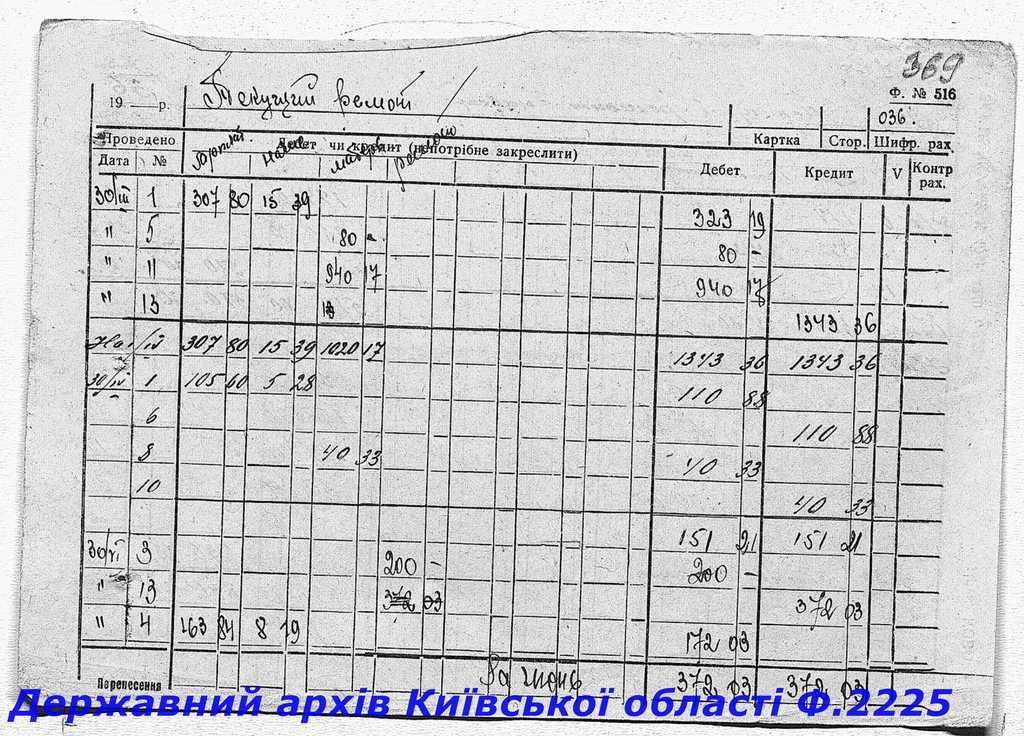 369
Ф. № 516
19 р. Текущий ремонт 036.
Картка Стор. Шифр. рах.
Проведено Дебет чи кредит (непотрібне закреслити) Дебет Кредит V Контр рах.
Дата №
30/III 1 307 80 15 39 323 19
" 5 80 - 80 -
" 11 940 17 940 17
" 13 1343 36
/III 307 80 15 39 1020 17 1343 36 1343 36
30/IV 1 105 60 5 28 110 88
6 110 88
8 40 33 40 33
10 40 33
151 21 151 21
30/VI 3 200 - 200 -
" 13 372 03 372 03
" 4 163 84 8 19 172 03
Перенесення За июнь 372 03 372 03
Державний архів Київської області Ф.2225